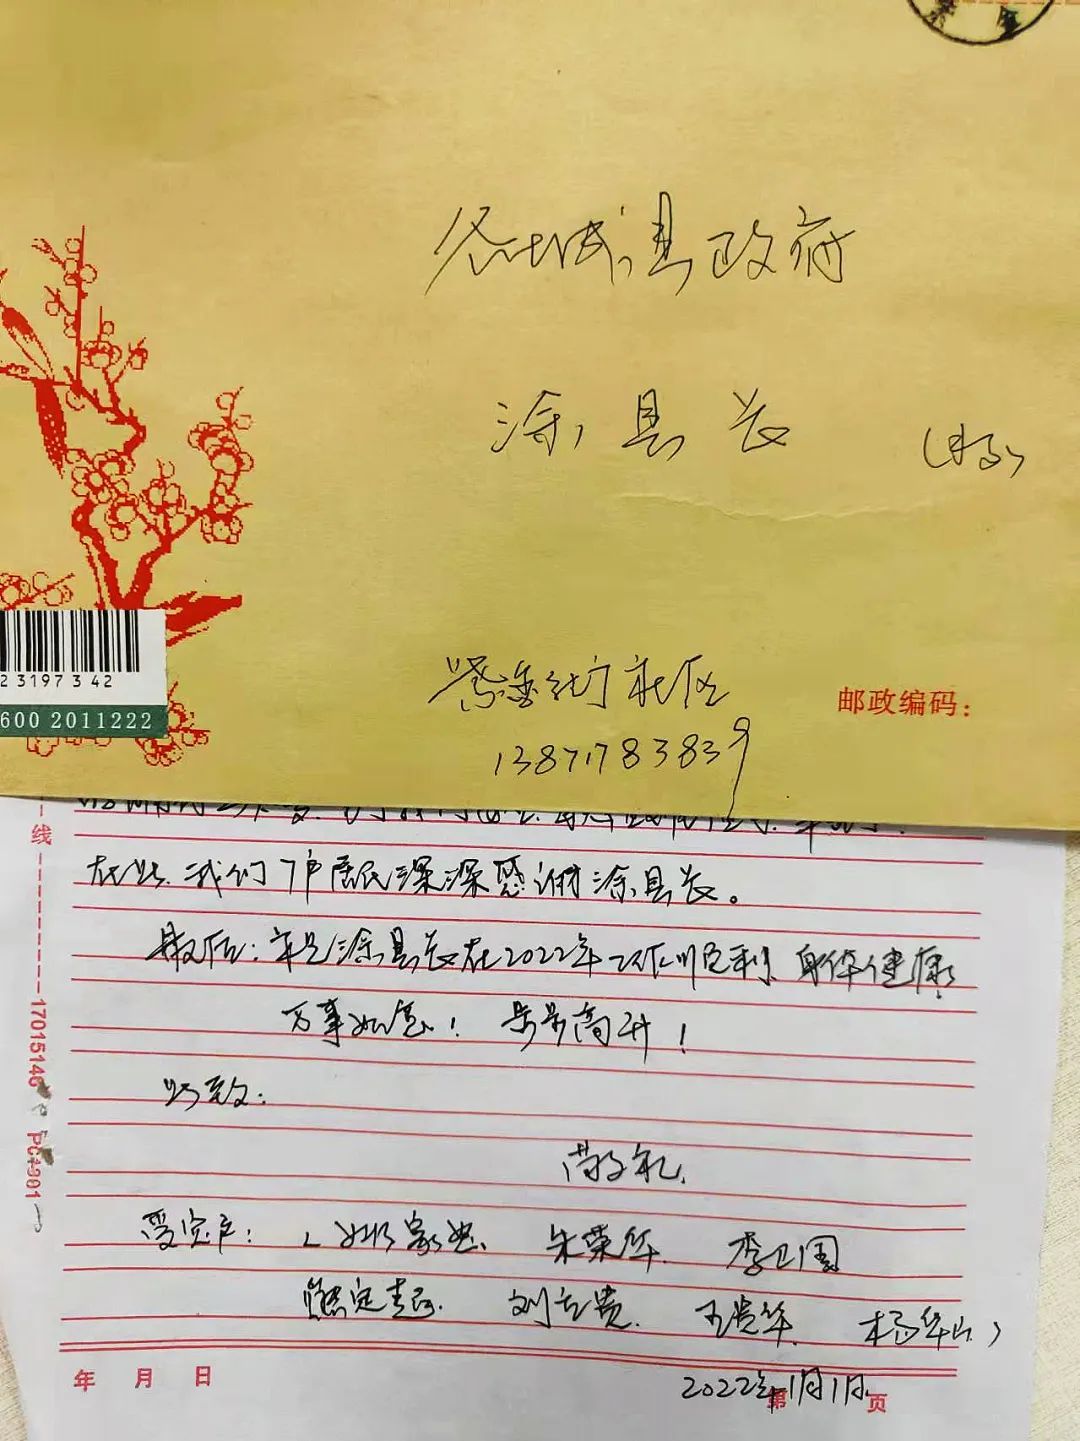 谷城县政府
涂县长
(收)
紫金街门社区
13871783839
邮政编码：
23197342
600 2011222
线
17015146
在此，我们7户居民深深感谢涂县长。
最后：祝涂县长在2022年工作顺利，身体健康
万事如意！ 步步高升！
此致：
敬礼
受灾户： 朱荣华 李卫国
熊定 刘 贵 王贵华 杨华山
年 月 日
2022年1月1日
第 页